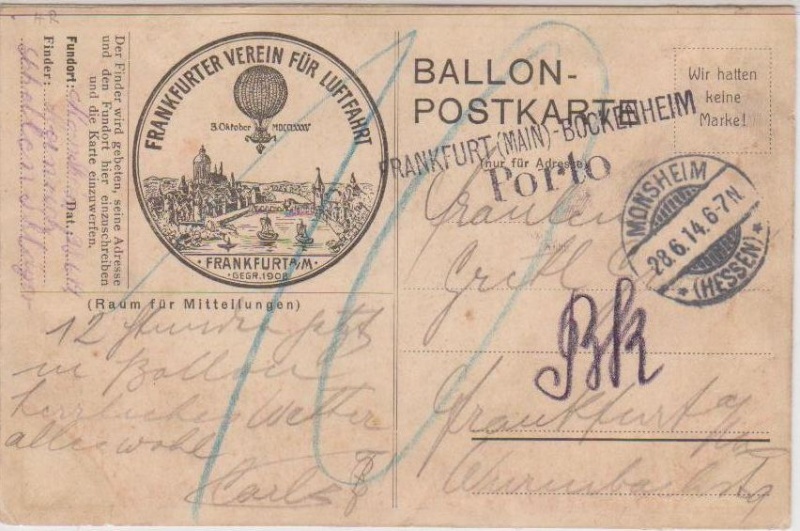 Der Finder wird gebeten, seine Adresse
und den Fundort hier einzuschreiben
und die Karte einzuwerfen.
Fundort: Dat.:
Finder:
FRANKFURTER VEREIN FÜR LUFTFAHRT
3. Oktober MDCCLXXXV
· FRANKFURT A/M ·
· GEGR. 1908 ·
(Raum für Mitteilungen)
12 Stunden jetzt
im Ballon
herrliches Wetter
alles wohl
Karl
BALLON-
POSTKARTE
Wir hatten
keine
Marke!
FRANKFURT (MAIN)-BOCKENHEIM
(nur für Adresse)
Porto
MONSHEIM
28.6.14.6-7N.
* (HESSEN) *
Fräulein
Gretl
Bk
Frankfurt a/M
10